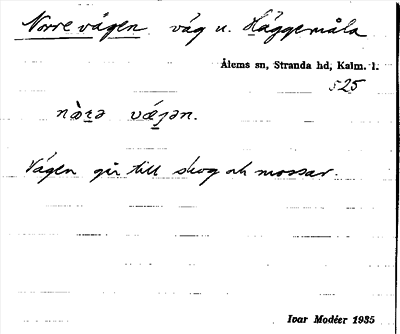 Norre vägen väg u. Häggemåla
Ålems sn, Stranda hd, Kalm. l.
525
Vägen går till skog och mossar.
Ivar Modéer 1935